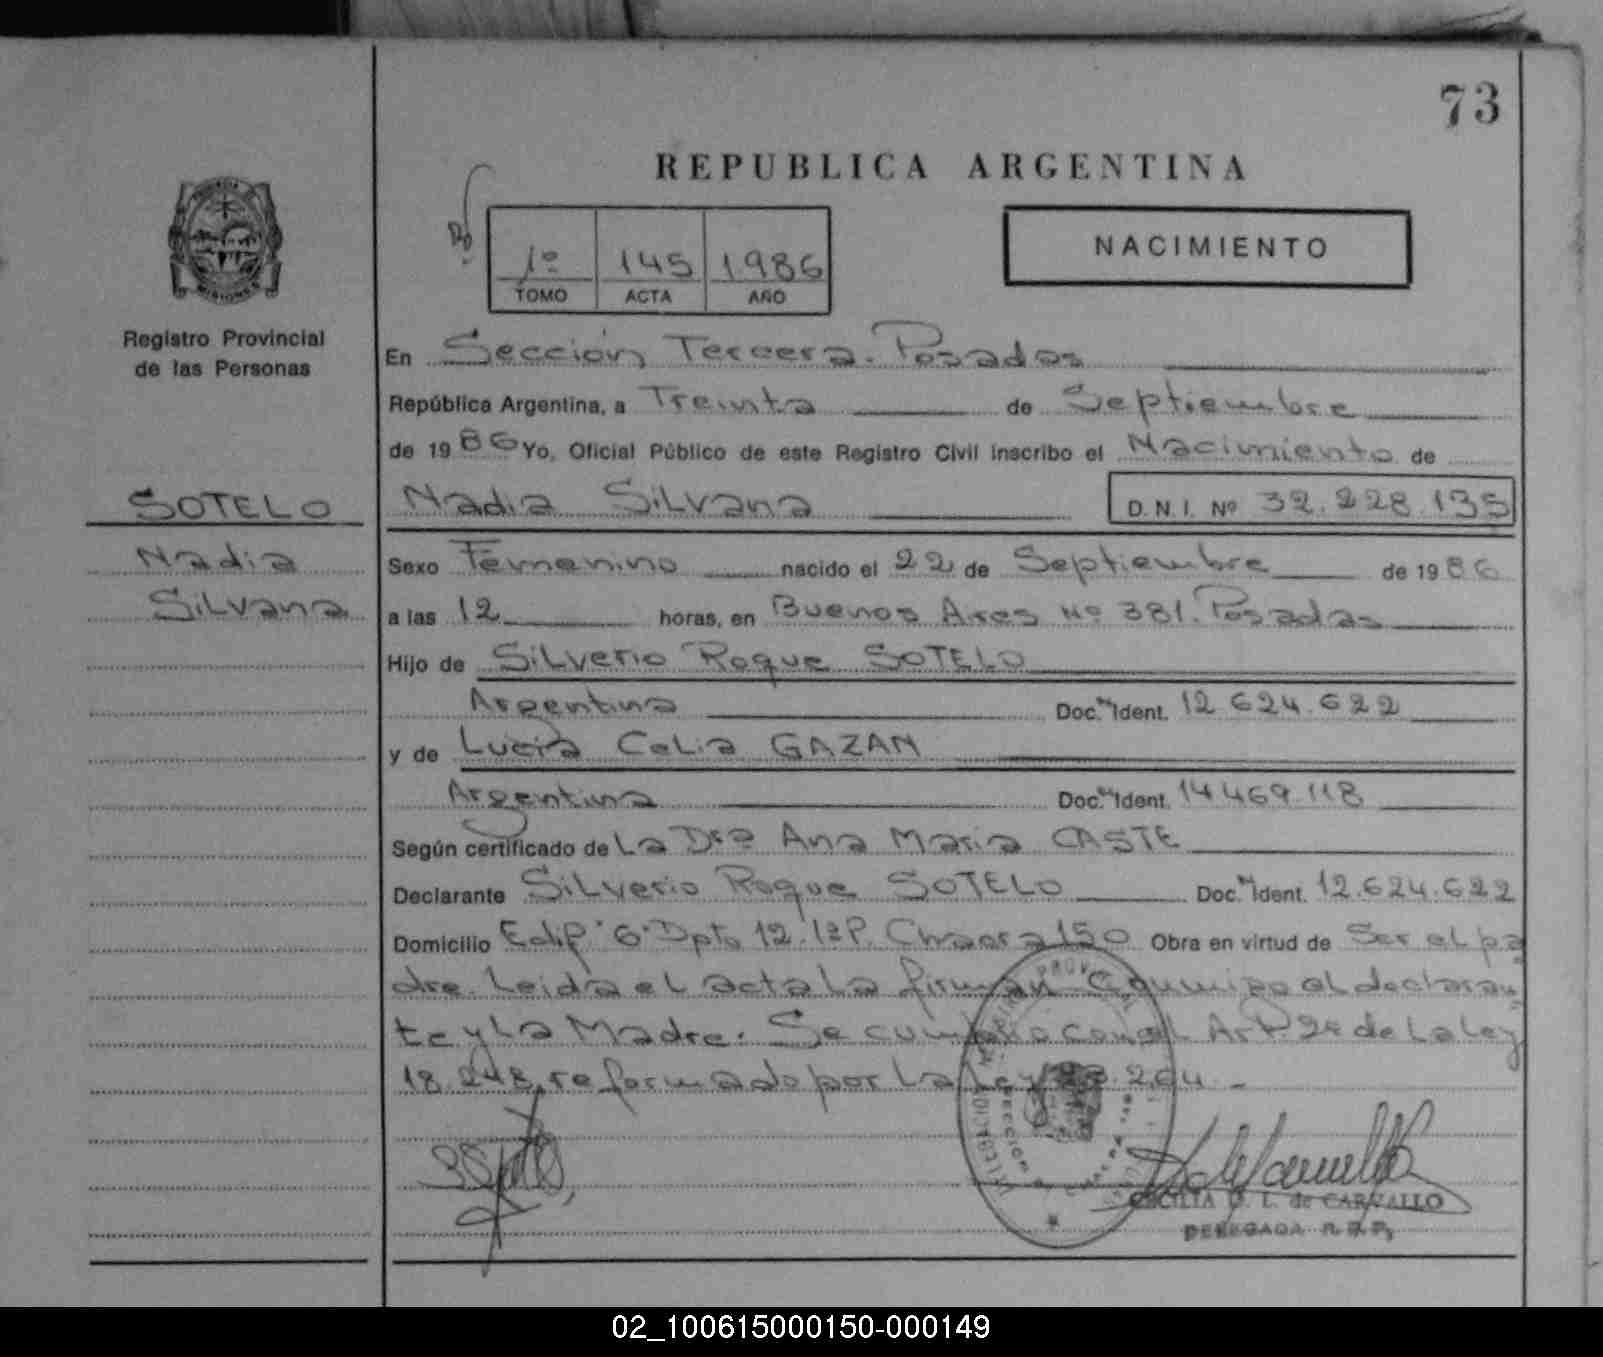 73
REPUBLICA ARGENTINA
PROVINCIA
MISIONES
Registro Provincial
de las Personas
1º 145 1986
TOMO ACTA AÑO
NACIMIENTO
En Sección Tercera. Posadas
República Argentina, a Treinta de Septiembre
de 1986 Yo, Oficial Público de este Registro Civil inscribo el Nacimiento de
SOTELO
Nadia
Silvana
Nadia Silvana D.N.I. Nº 32.228.135
Sexo Femenino nacido el 22 de Septiembre de 1986
a las 12 horas, en Buenos Aires Nº 381. Posadas
Hijo de Silverio Roque SOTELO
Argentina Doc. Nº Ident. 12.624.622
y de Lucia Celia GAZAN
Argentina Doc. Nº Ident. 14.469.118
Según certificado de La Dra Ana Maria CASTE
Declarante Silverio Roque SOTELO Doc. Nº Ident. 12.624.622
Domicilio Edif "6" Dpto 12. 1º P. Chacra 150 Obra en virtud de Ser el pa
dre. Leida el acta La firman Conmigo el declaran
te y La Madre. Se cumplio con el Art. 2º de La Ley
18.248, reformado por La Ley 23.264.-
CECILIA L. de CARVALLO
DELEGADA R.P.P.
02_100615000150-000149